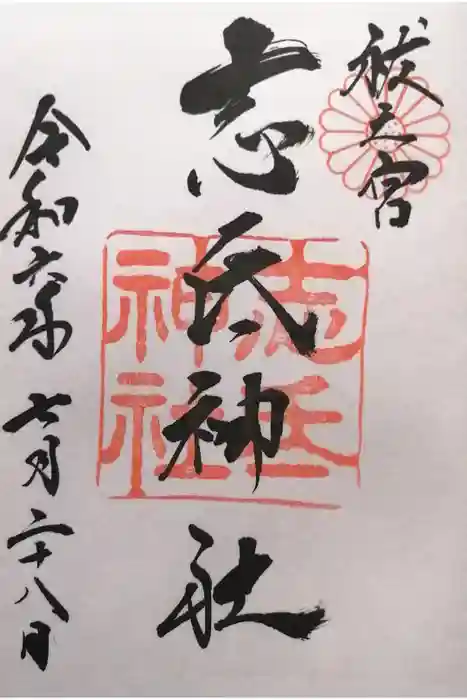 祓之宮
志氐神社
志氐
神社
令和六年 七月二十八日